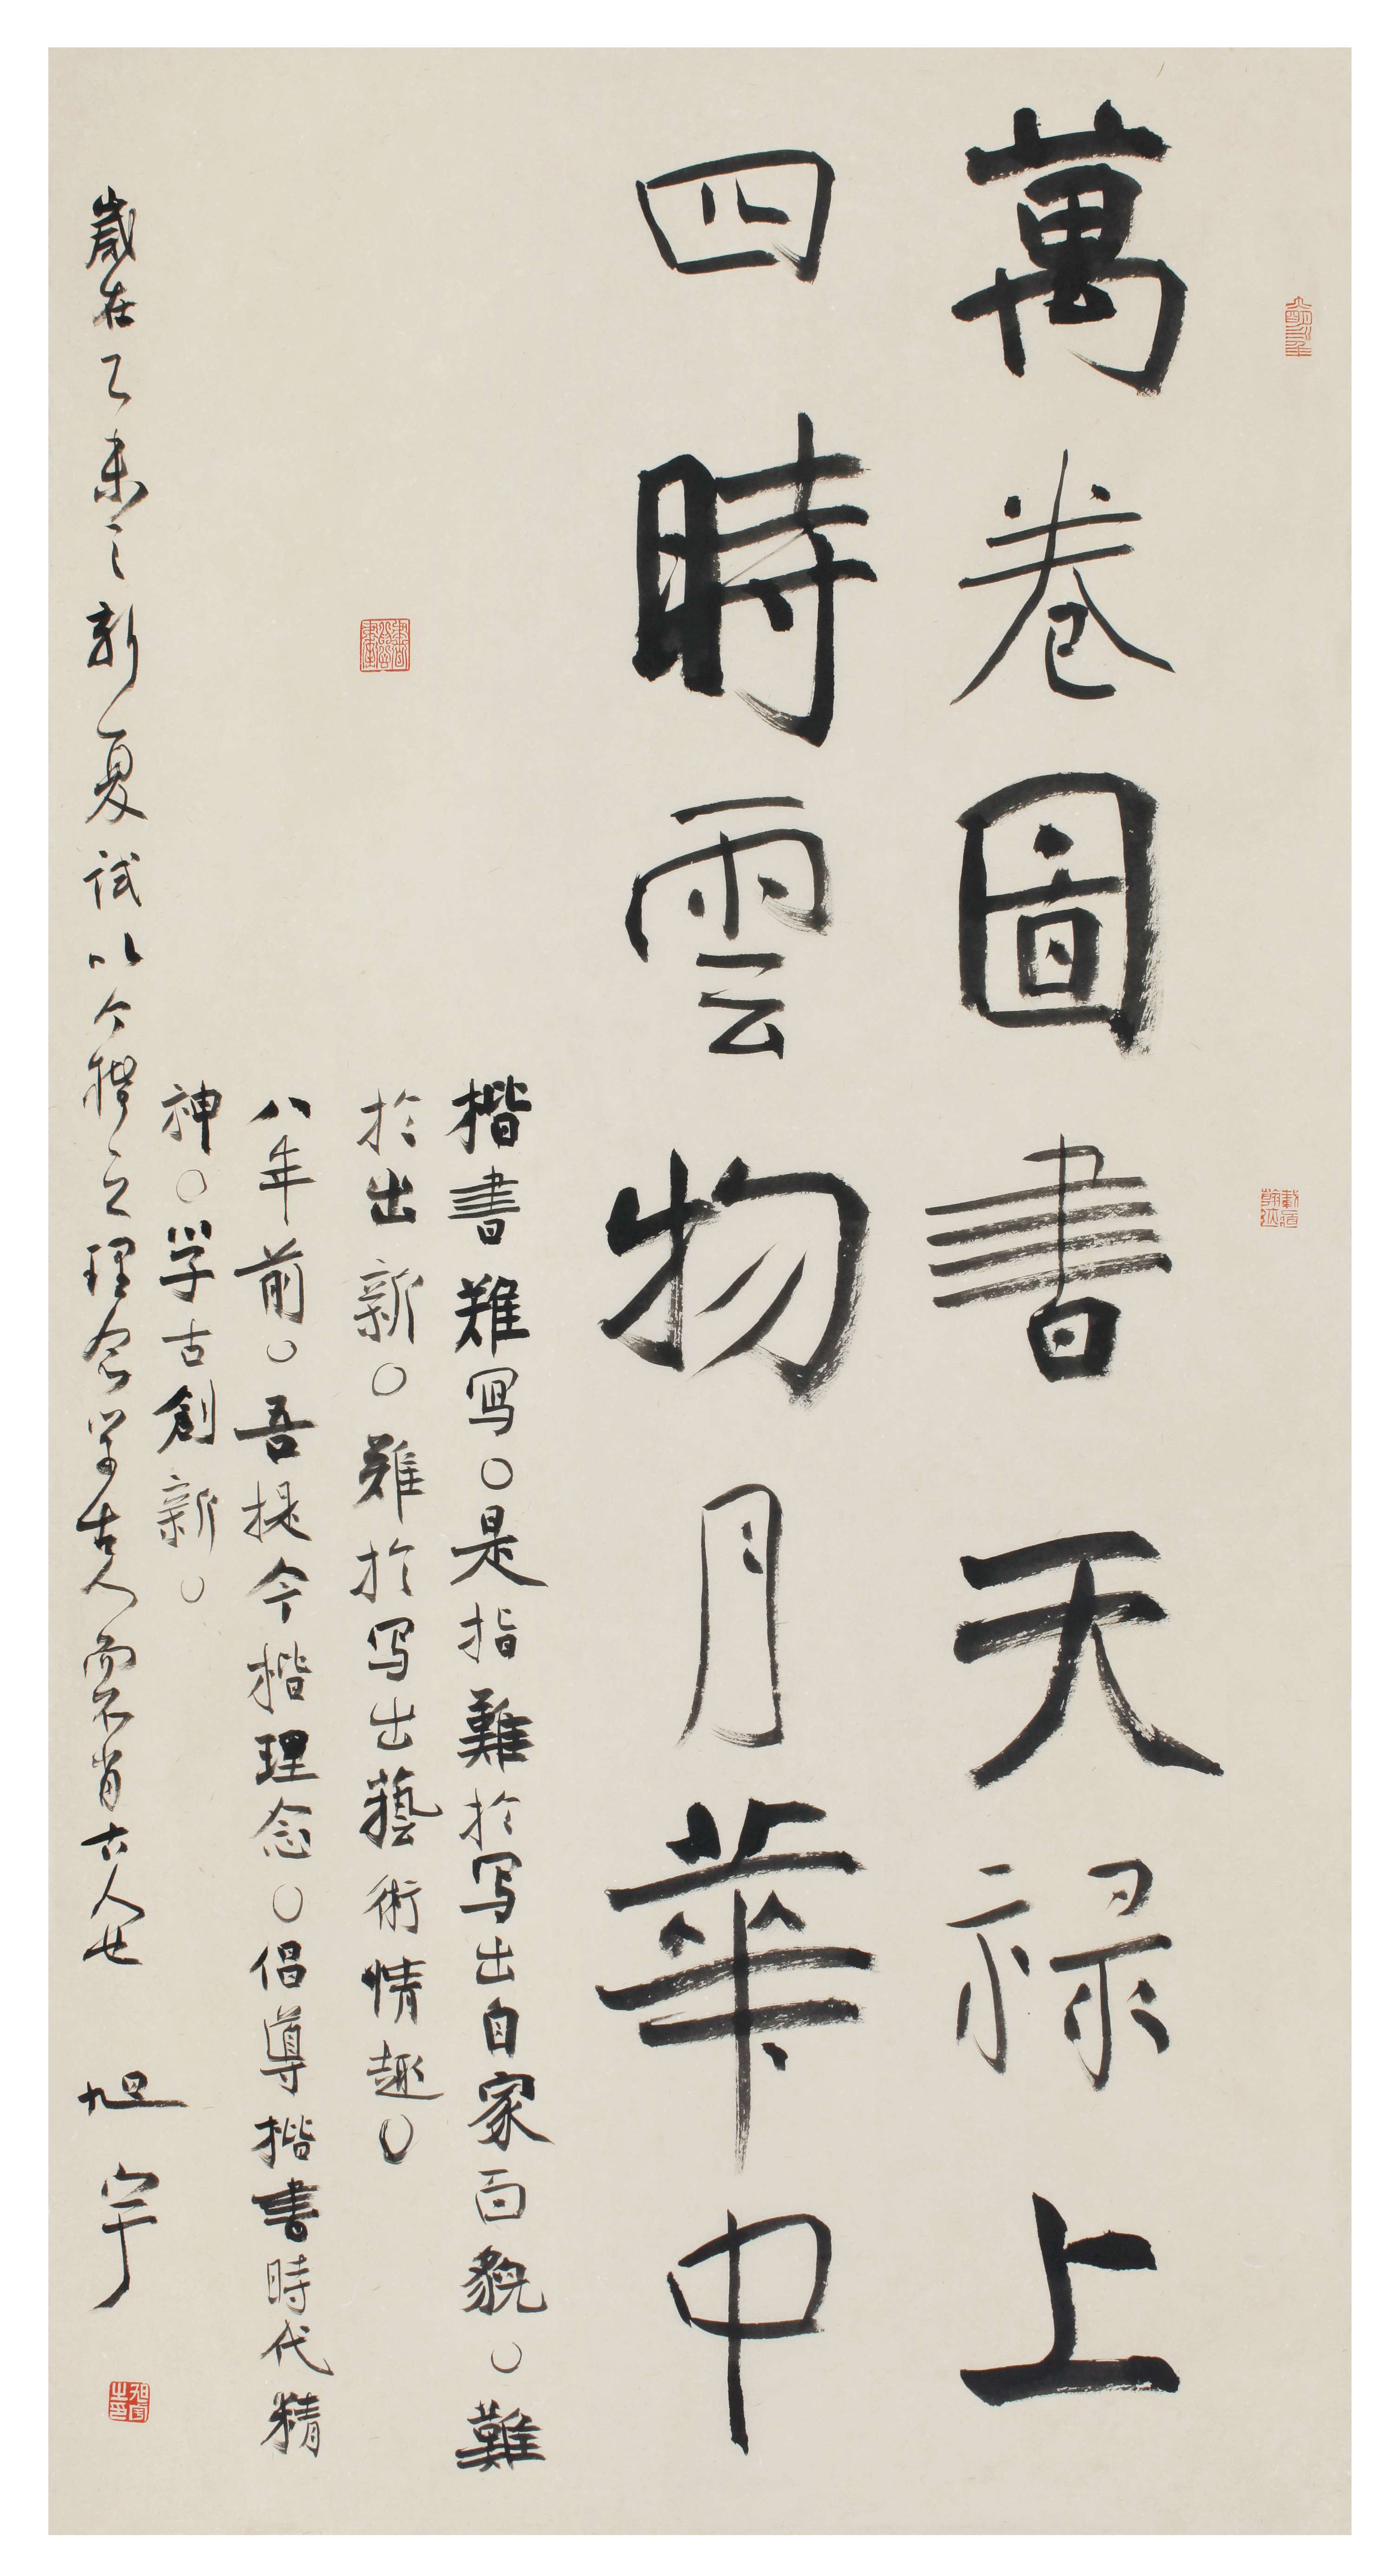 萬卷圖書天禄上
四時雲物月華中
楷書難写○是指難於写出自家面貌○難
於出新○難於写出藝術情趣○
八年前○吾提今楷理念○倡導楷書時代精
神○学古創新○
歲在乙未之新夏試以今楷之理念学古人而不肖古人也 旭宇
旭宇之印